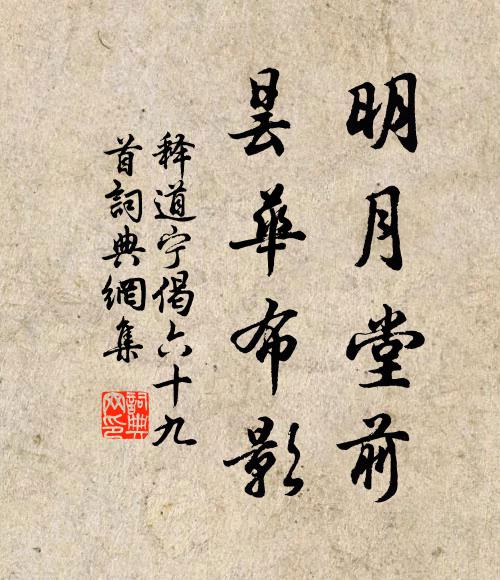 明月堂前
曇華布影
释道宁偈六十九
首詞典網集
詞典
网印